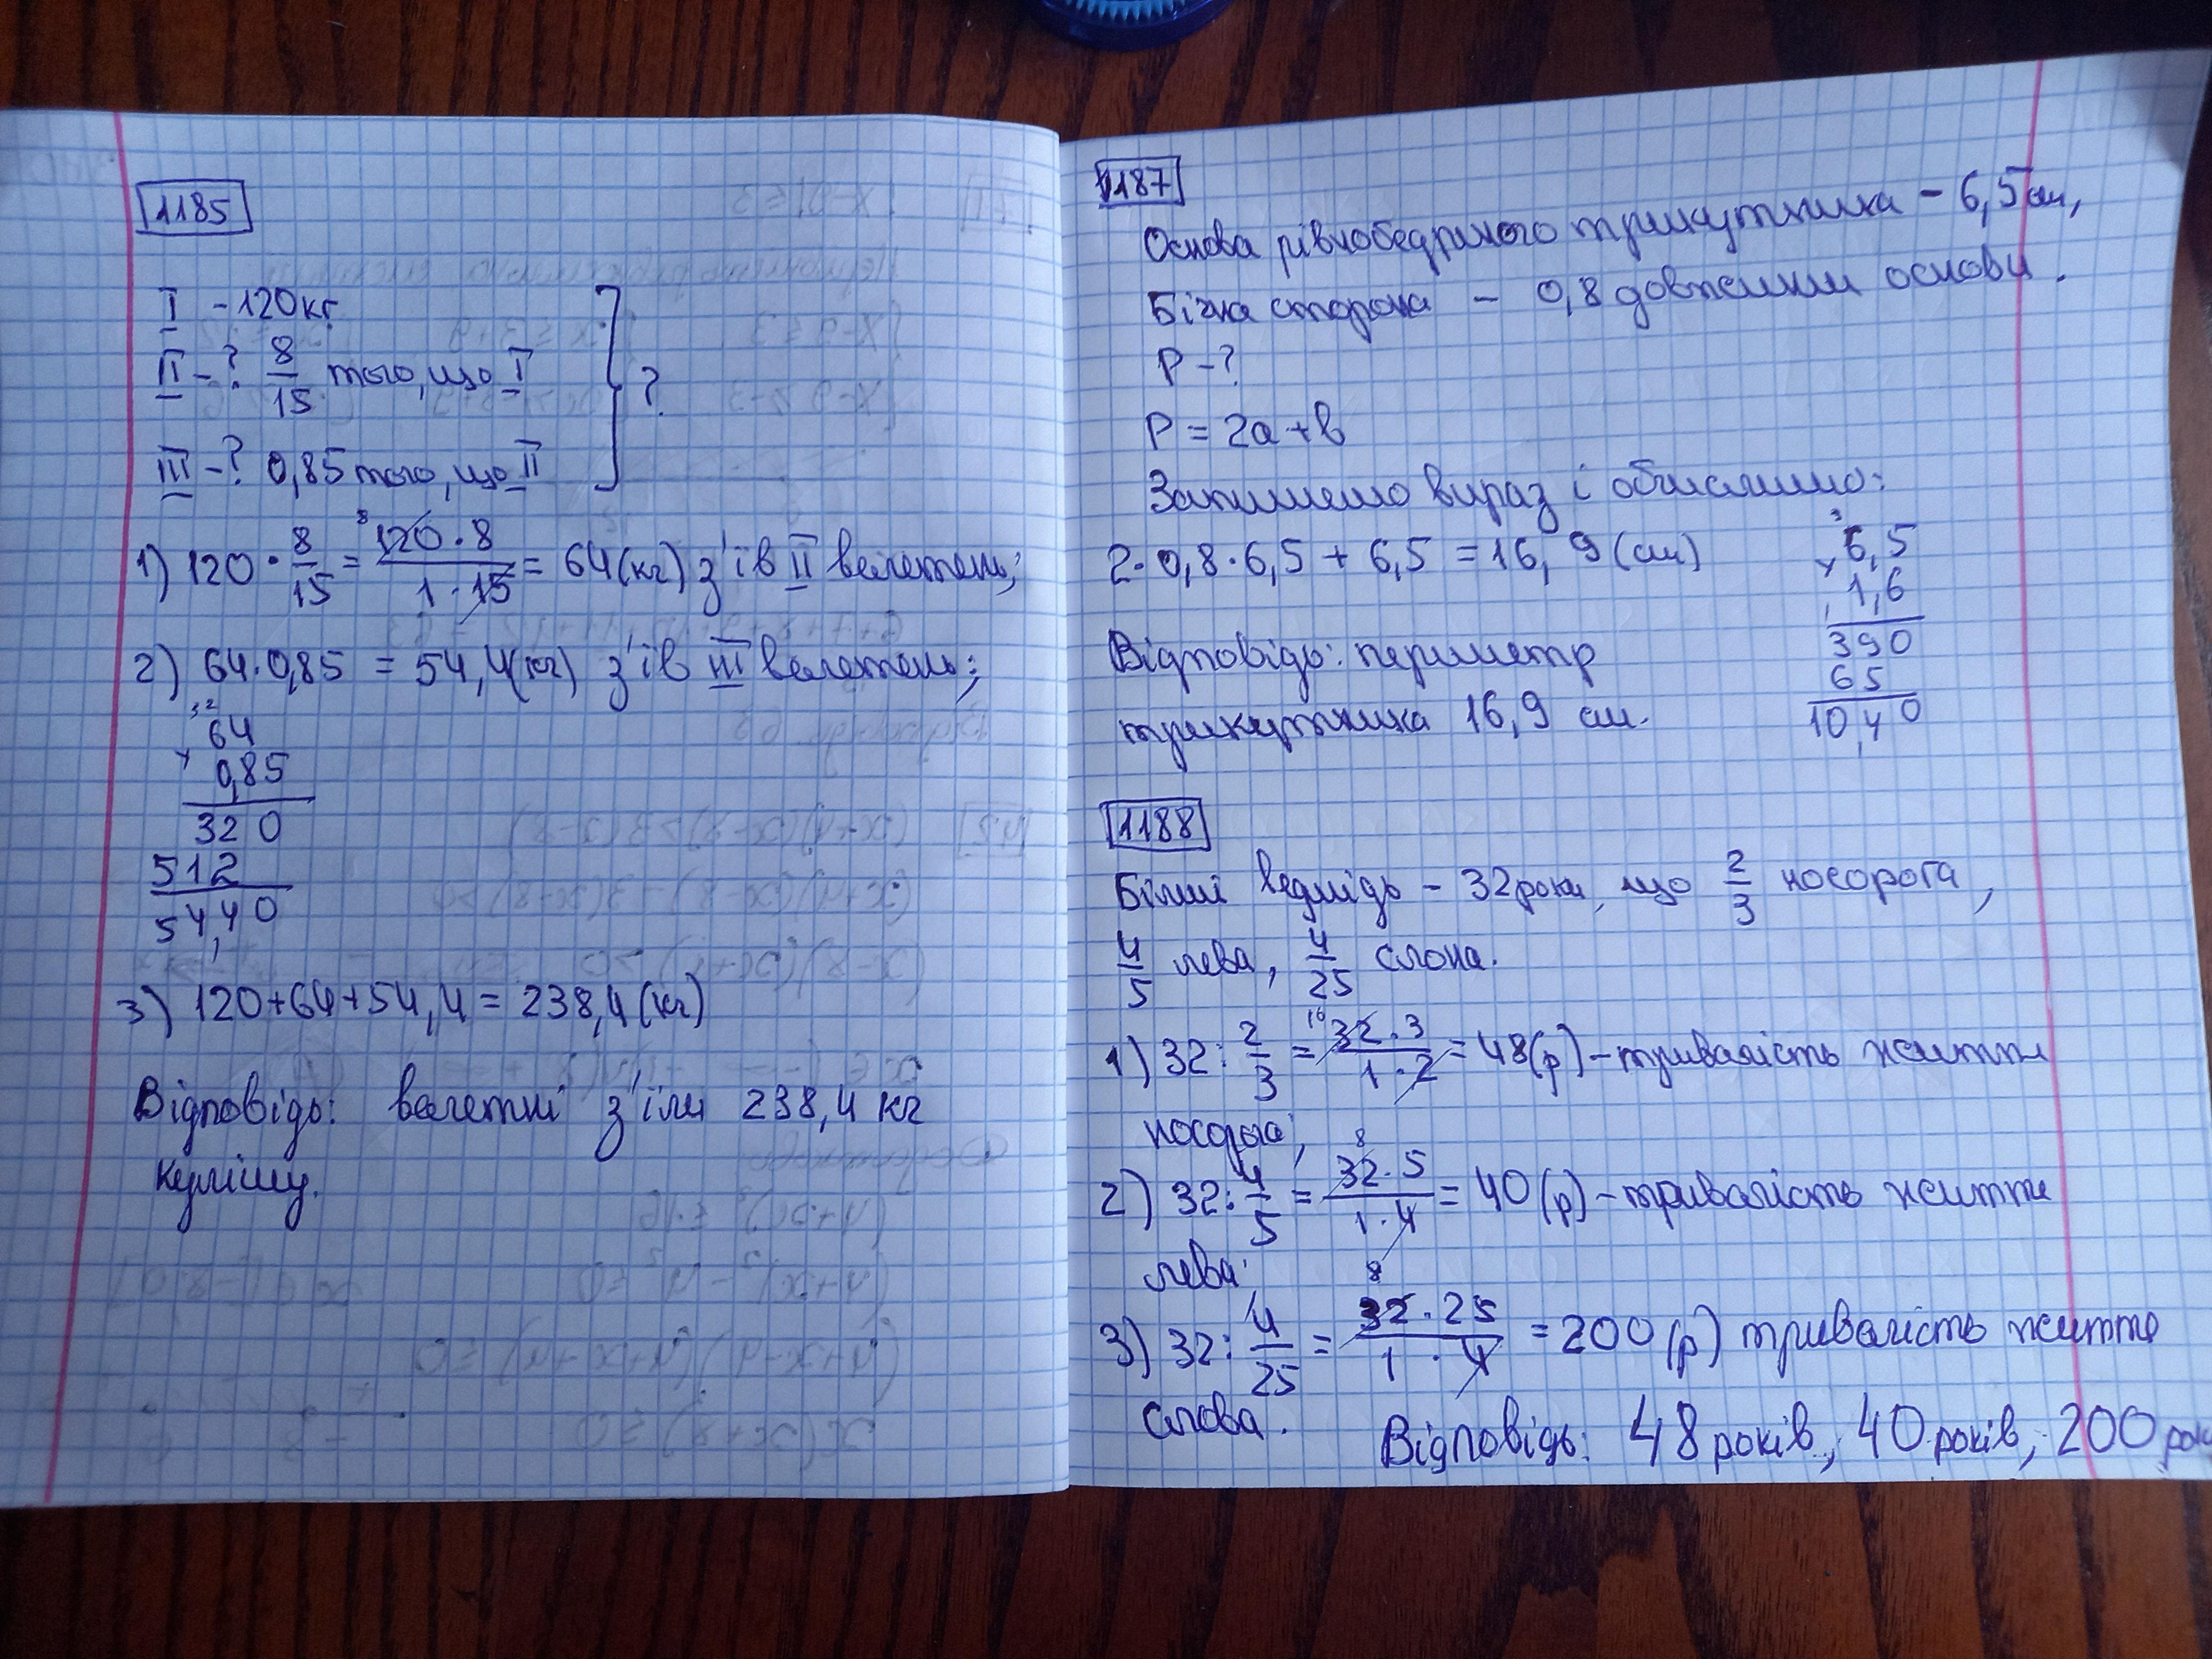 1185
I - 120кг
II - ? 8/15 того, що I
?
III - ? 0,85 того, що II
1) 120 · 8/15 = 120 · 8 / 1 · 15 = 64 (кг) з'їв II велетень;
8
2) 64 · 0,85 = 54,4 (кг) з'їв III велетень;
3 2
64
×
0,85
320
512
54,40
3) 120 + 64 + 54,4 = 238,4 (кг)
Відповідь: велетні з'їли 238,4 кг
кулішу.
1187
Основа рівнобедреного трикутника - 6,5 см,
Бічна сторона - 0,8 довжини основи.
P - ?
P = 2a + b
Запишемо вираз і обчислимо:
2 · 0,8 · 6,5 + 6,5 = 16,9 (см)
3
6,5
×
1,6
390
65
10,40
Відповідь: периметр
трикутника 16,9 см.
1188
Білий ведмідь - 32 роки, що 2/3 носорога,
4/5 лева, 4/25 слона.
16
1) 32 : 2/3 = 32 · 3 / 1 · 2 = 48 (р) - тривалість життя
носорога;
8
2) 32 : 4/5 = 32 · 5 / 1 · 4 = 40 (р) - тривалість життя
лева;
8
3) 32 : 4/25 = 32 · 25 / 1 · 4 = 200 (р) тривалість життя
слона.
Відповідь: 48 років, 40 років, 200